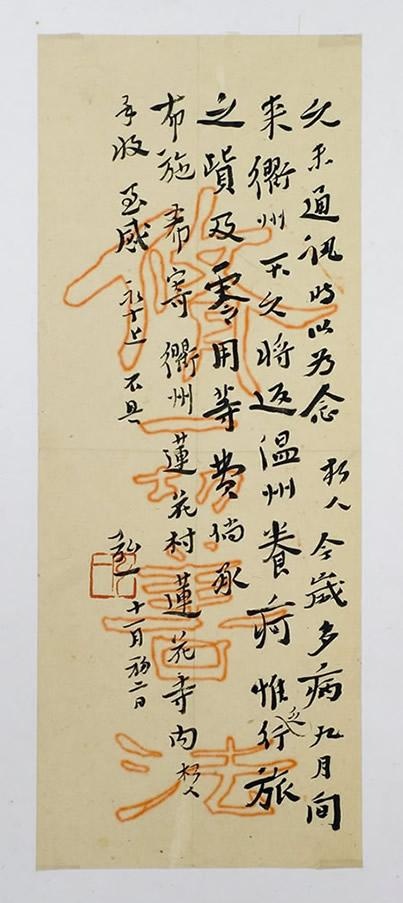 久未通訊時以為念 朽人今歲多病九月間
来衢州不久將返温州養疴惟乏行旅
之貲及零用等費倘承
布施希寄衢州蓮花村蓮花寺内朽人
手收至感 不具
弘一 十一月初二日
修一切善法